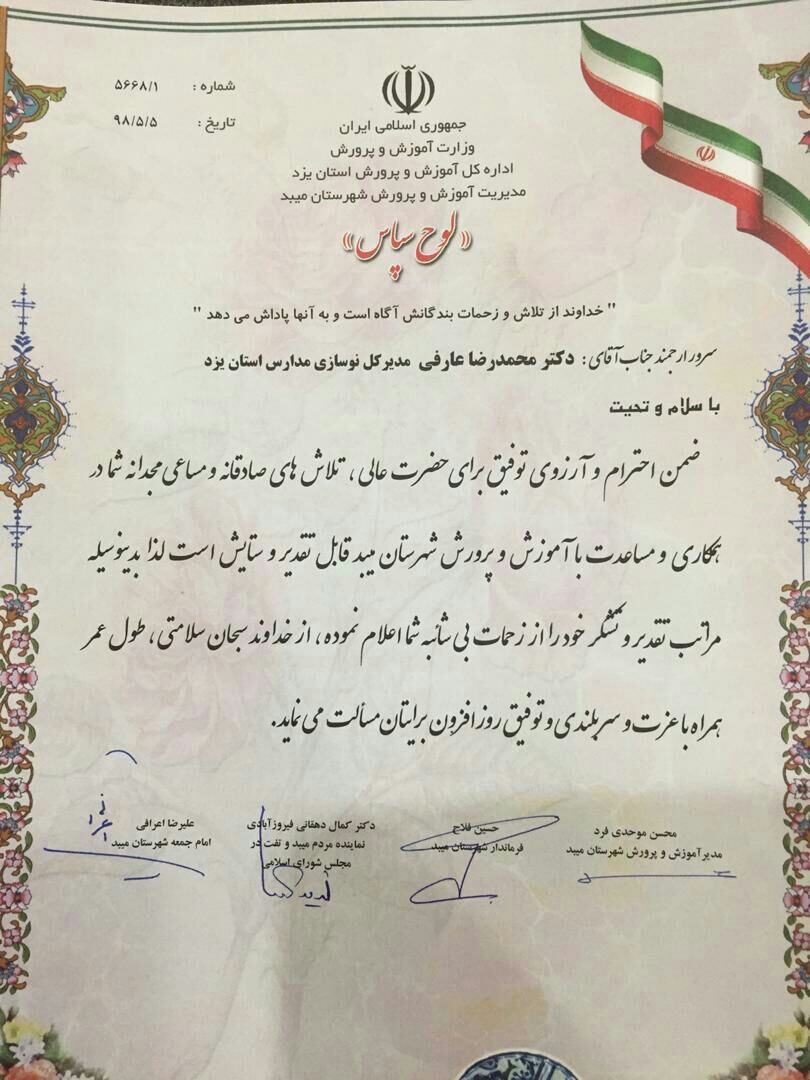 شماره : ۵۶۶۸/۱
تاریخ : ۹۸/۵/۵
جمهوری اسلامی ایران
وزارت آموزش و پرورش
اداره کل آموزش و پرورش استان یزد
مدیریت آموزش و پرورش شهرستان میبد
«لوح سپاس»
" خداوند از تلاش و زحمات بندگانش آگاه است و به آنها پاداش می دهد "
سرور ارجمند جناب آقای : دکتر محمدرضا عارفی مدیرکل نوسازی مدارس استان یزد
با سلام و تحیت
ضمن احترام و آرزوی توفیق برای حضرت عالی ، تلاش های صادقانه و مساعی مجدانه شما در
همکاری و مساعدت با آموزش و پرورش شهرستان میبد قابل تقدیر و ستایش است لذا بدینوسیله
مراتب تقدیر و تشکر خود را از زحمات بی شائبه شما اعلام نموده ، از خداوند سبحان سلامتی ، طول عمر
همراه با عزت و سربلندی و توفیق روز افزون برایتان مسألت می نماید.
محسن موحدی فرد
مدیر آموزش و پرورش شهرستان میبد
حسین فلاح
فرماندار شهرستان میبد
دکتر کمال دهقانی فیروزآبادی
نماینده مردم میبد و تفت در
مجلس شورای اسلامی
علیرضا اعرافی
امام جمعه شهرستان میبد